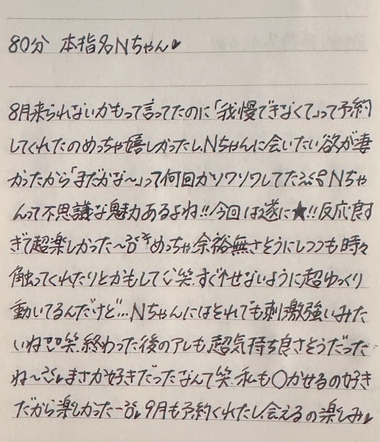 80分 本指名Nちゃん♥
8月来られないかもって言ってたのに「我慢できなくて」って予約
してくれたのめっちゃ嬉しかったし、Nちゃんに会いたい欲が凄
かったから「まだかな〜」って何回かソワソワしてた Nちゃ
んって不思議な魅力あるよね!!今回は遂に★!!反応良す
ぎて超楽しかった〜 めっちゃ余裕無さそうにしつつも時々
触ってくれたりとかもして 笑 すぐ せないように超ゆっくり
動いてるんだけど…Nちゃんにはそれでも刺激強いみた
いね 笑 終わった後のアレも超気持ち良さそうだった
ね〜 まさか好きだったなんて笑 私も○かせるの好き
だから楽しかった〜 9月も予約くれたし会えるの楽しみ♥